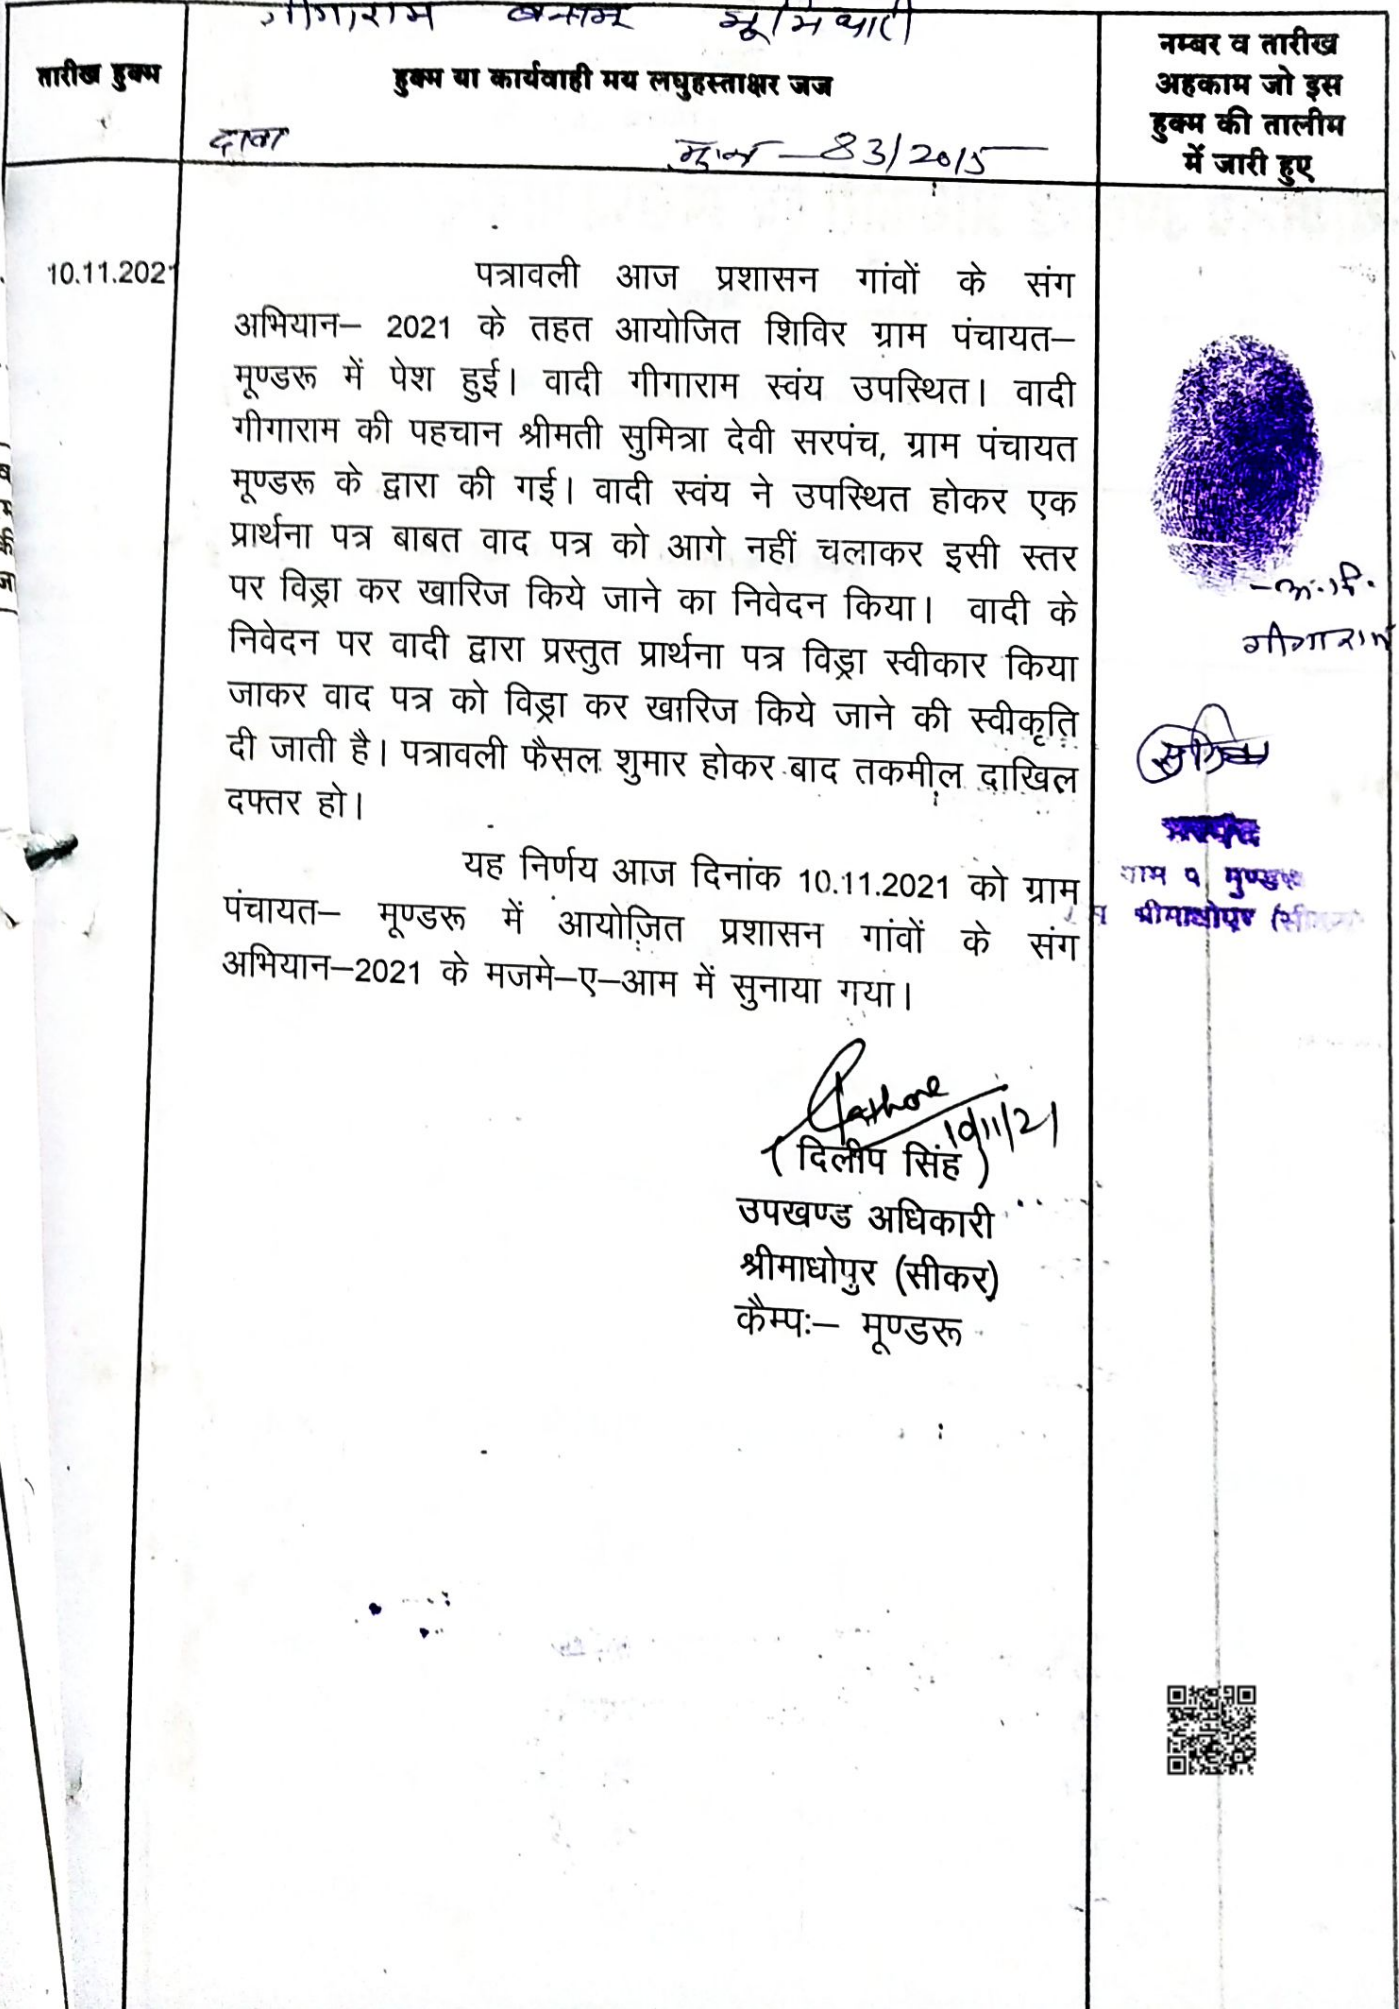 गीगाराम बनाम भूमिधारी
तारीख हुक्म
हुक्म या कार्यवाही मय लघुहस्ताक्षर जज
नम्बर व तारीख
अहकाम जो इस
हुक्म की तालीम
में जारी हुए
दावा
83/2015
10.11.2021
पत्रावली आज प्रशासन गांवों के संग
अभियान– 2021 के तहत आयोजित शिविर ग्राम पंचायत–
मूण्डरू में पेश हुई। वादी गीगाराम स्वंय उपस्थित। वादी
गीगाराम की पहचान श्रीमती सुमित्रा देवी सरपंच, ग्राम पंचायत
मूण्डरू के द्वारा की गई। वादी स्वंय ने उपस्थित होकर एक
प्रार्थना पत्र बाबत वाद पत्र को आगे नहीं चलाकर इसी स्तर
पर विड्रा कर खारिज किये जाने का निवेदन किया। वादी के
निवेदन पर वादी द्वारा प्रस्तुत प्रार्थना पत्र विड्रा स्वीकार किया
जाकर वाद पत्र को विड्रा कर खारिज किये जाने की स्वीकृति
दी जाती है। पत्रावली फैसल शुमार होकर बाद तकमील दाखिल
दफ्तर हो।
यह निर्णय आज दिनांक 10.11.2021 को ग्राम
पंचायत– मूण्डरू में आयोजित प्रशासन गांवों के संग
अभियान–2021 के मजमे–ए–आम में सुनाया गया।
10/11/21
( दिलीप सिंह )
उपखण्ड अधिकारी
श्रीमाधोपुर (सीकर)
कैम्पः– मूण्डरू
अ.नि.
गीगाराम
सुमित्रा
सरपंच
ग्राम पं मुण्डरू
श्रीमाधोपुर